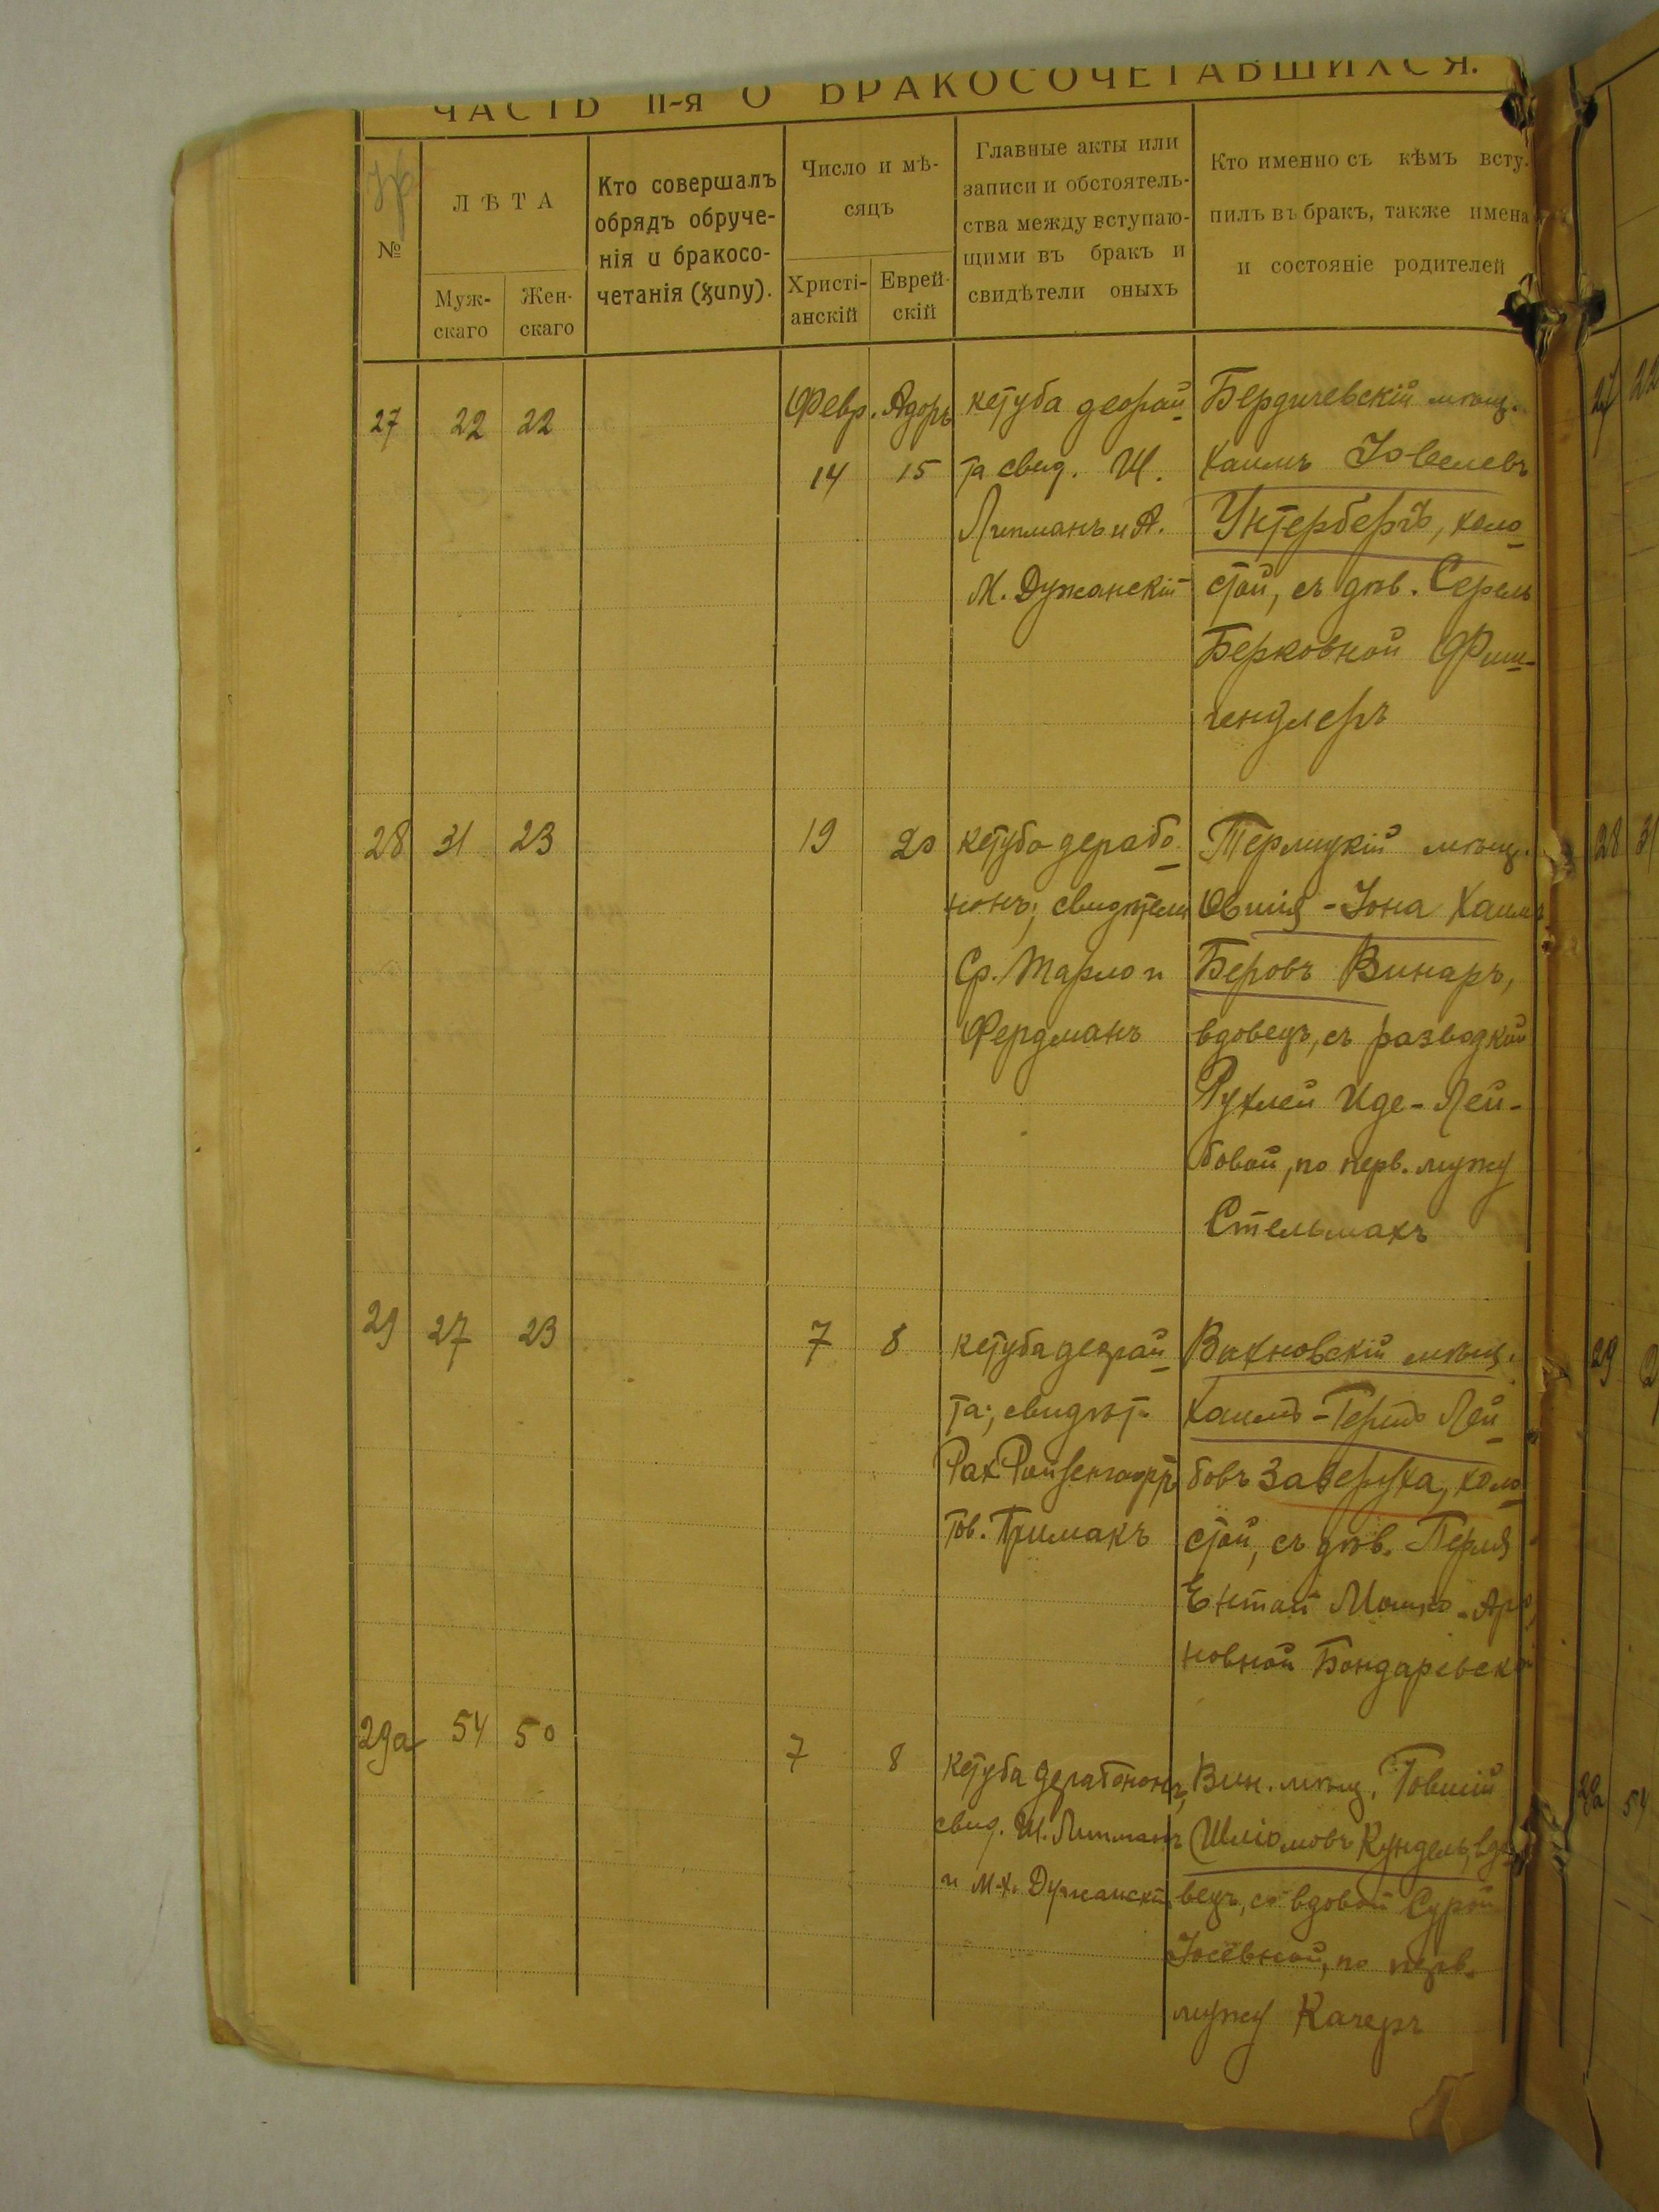 ЧАСТЬ II-я О БРАКОСОЧЕТАВШИХСЯ.
№
ЛѢТА
Муж-
скаго
Жен-
скаго
Кто совершалъ
обрядъ обруче-
нія и бракосо-
четанія (хупу).
Число и мѣ-
сяцъ
Христі-
анскій
Еврей-
скій
Главные акты или
записи и обстоятель-
ства между вступаю-
щими въ бракъ и
свидѣтели оныхъ
Кто именно съ кѣмъ всту-
пилъ въ бракъ, также имена
и состояніе родителей
27 22 22 Февр. Адоръ
14 15
кетуба деорай
та свид. Ш.
Липманъ и А.
М. Дужанскій
Бердичевскій мѣщ.
Хаимъ Іовелевъ
Унтербергъ, холо
стой, съ дѣв. Серель
Берковной Фиш-
гендлеръ
28 31 23 19 20
кетуба дерабо
нонъ; свидѣтели
Ср. Тарло и
Фердманъ
Терлицкій мѣщ.
Овшія-Іона Хаимъ
Беровъ Винаръ,
вдовецъ, съ разводкой
Рухлей Иде-Лей-
бовой, по перв. мужу
Стельмахъ
29 27 23 7 8
кетуба деорай
та; свидѣт.
Рах. Ройзенгортъ
Тов. Примакъ
Вахновскій мѣщ.
Хаимъ-Гершъ Лей
бовъ Заверуха, холо
стой, съ дѣв. Перля
Ентой Мошко-Аро
новной Бондаревской
29а 54 50 7 8
кетуба дерабононъ,
свид. Ш. Липманъ
и М-Х. Дужанскій
Вин. мѣщ. Товшій
Шліомовъ Кундель, вдо
вецъ, съ вдовой Сурой
Іосевной, по перв.
мужу Качеръ
27 22
28 31
29
29а 54